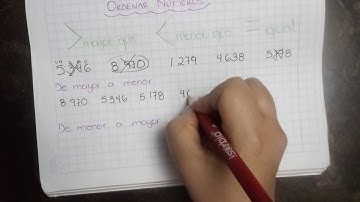 ORDENAR NÚMEROS
> mayor que < menor que = igual
5 346 8 970 1 279 4 638 5 178
De mayor a menor
8 970 5 346 5 178 46
De menor a mayor